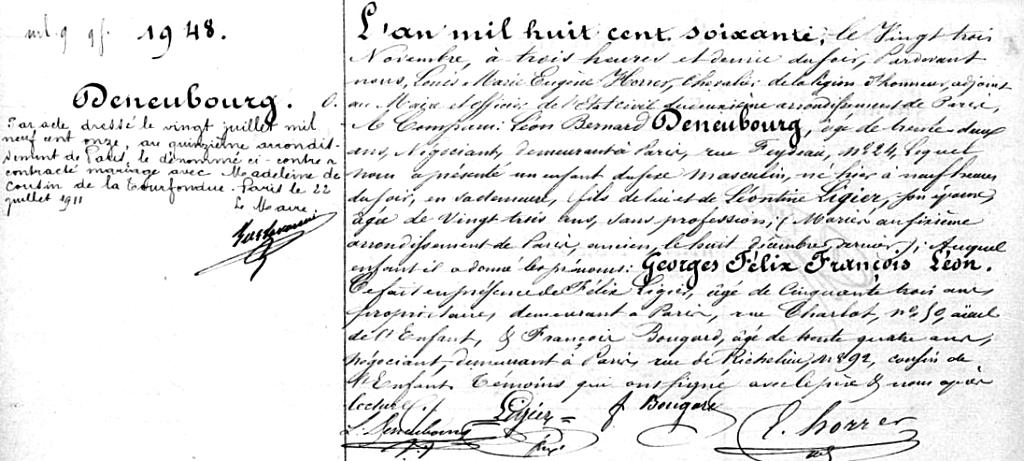 1948.
Deneubourg.
Par acte dressé le vingt juillet mil
neuf cent onze, au quinzième arrondis-
sement de Paris, le dénommé ci-contre a
contracté mariage avec Madeleine de
Cousin de la Tourfondue. Paris le 22
juillet 1911
Le Maire.
L'an mil huit cent soixante, le Vingt trois
Novembre, à trois heures et demie du soir, Pardevant
nous, Louis Marie Eugène Horrer, Chevalier de la Légion d'honneur, adjoint
au Maire et officier de l'Etat civil du deuxième arrondissement de Paris,
à Comparu: Léon Bernard Deneubourg, âgé de trente deux
ans, Négociant, demeurant à Paris, rue Feydeau, nº 24, Lequel
nous a présenté un enfant du sexe masculin, né hier à neuf heures
du soir, en sa demeure, fils de lui et de Léontine Ligier, son épouse
âgée de Vingt trois ans, sans profession; (Mariés au sixième
arrondissement de Paris, ancien, le huit décembre dernier); Auquel
enfant il a donné les prénoms: Georges Félix François Léon.
Ce fait en présence de Félix Ligier, âgé de Cinquante trois ans,
propriétaire, demeurant à Paris, rue Charlot, nº 50, aïeul
de l'Enfant, & François Bougard, âgé de trente quatre ans,
négociant, demeurant à Paris, rue de Richelieu, nº 92, cousin de
l'Enfant. Témoins qui ont signé avec le père & nous après
lecture.
Ligier
f Bougard
L. Deneubourg
E. horrer